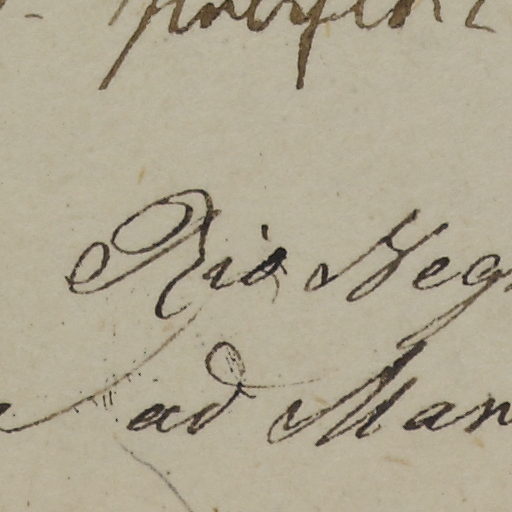 Rio Neg
ad Man